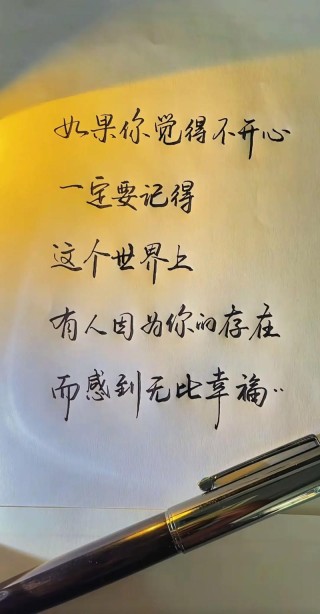 如果你觉得不开心
一定要记得
这个世界上
有人因为你的存在
而感到无比幸福··